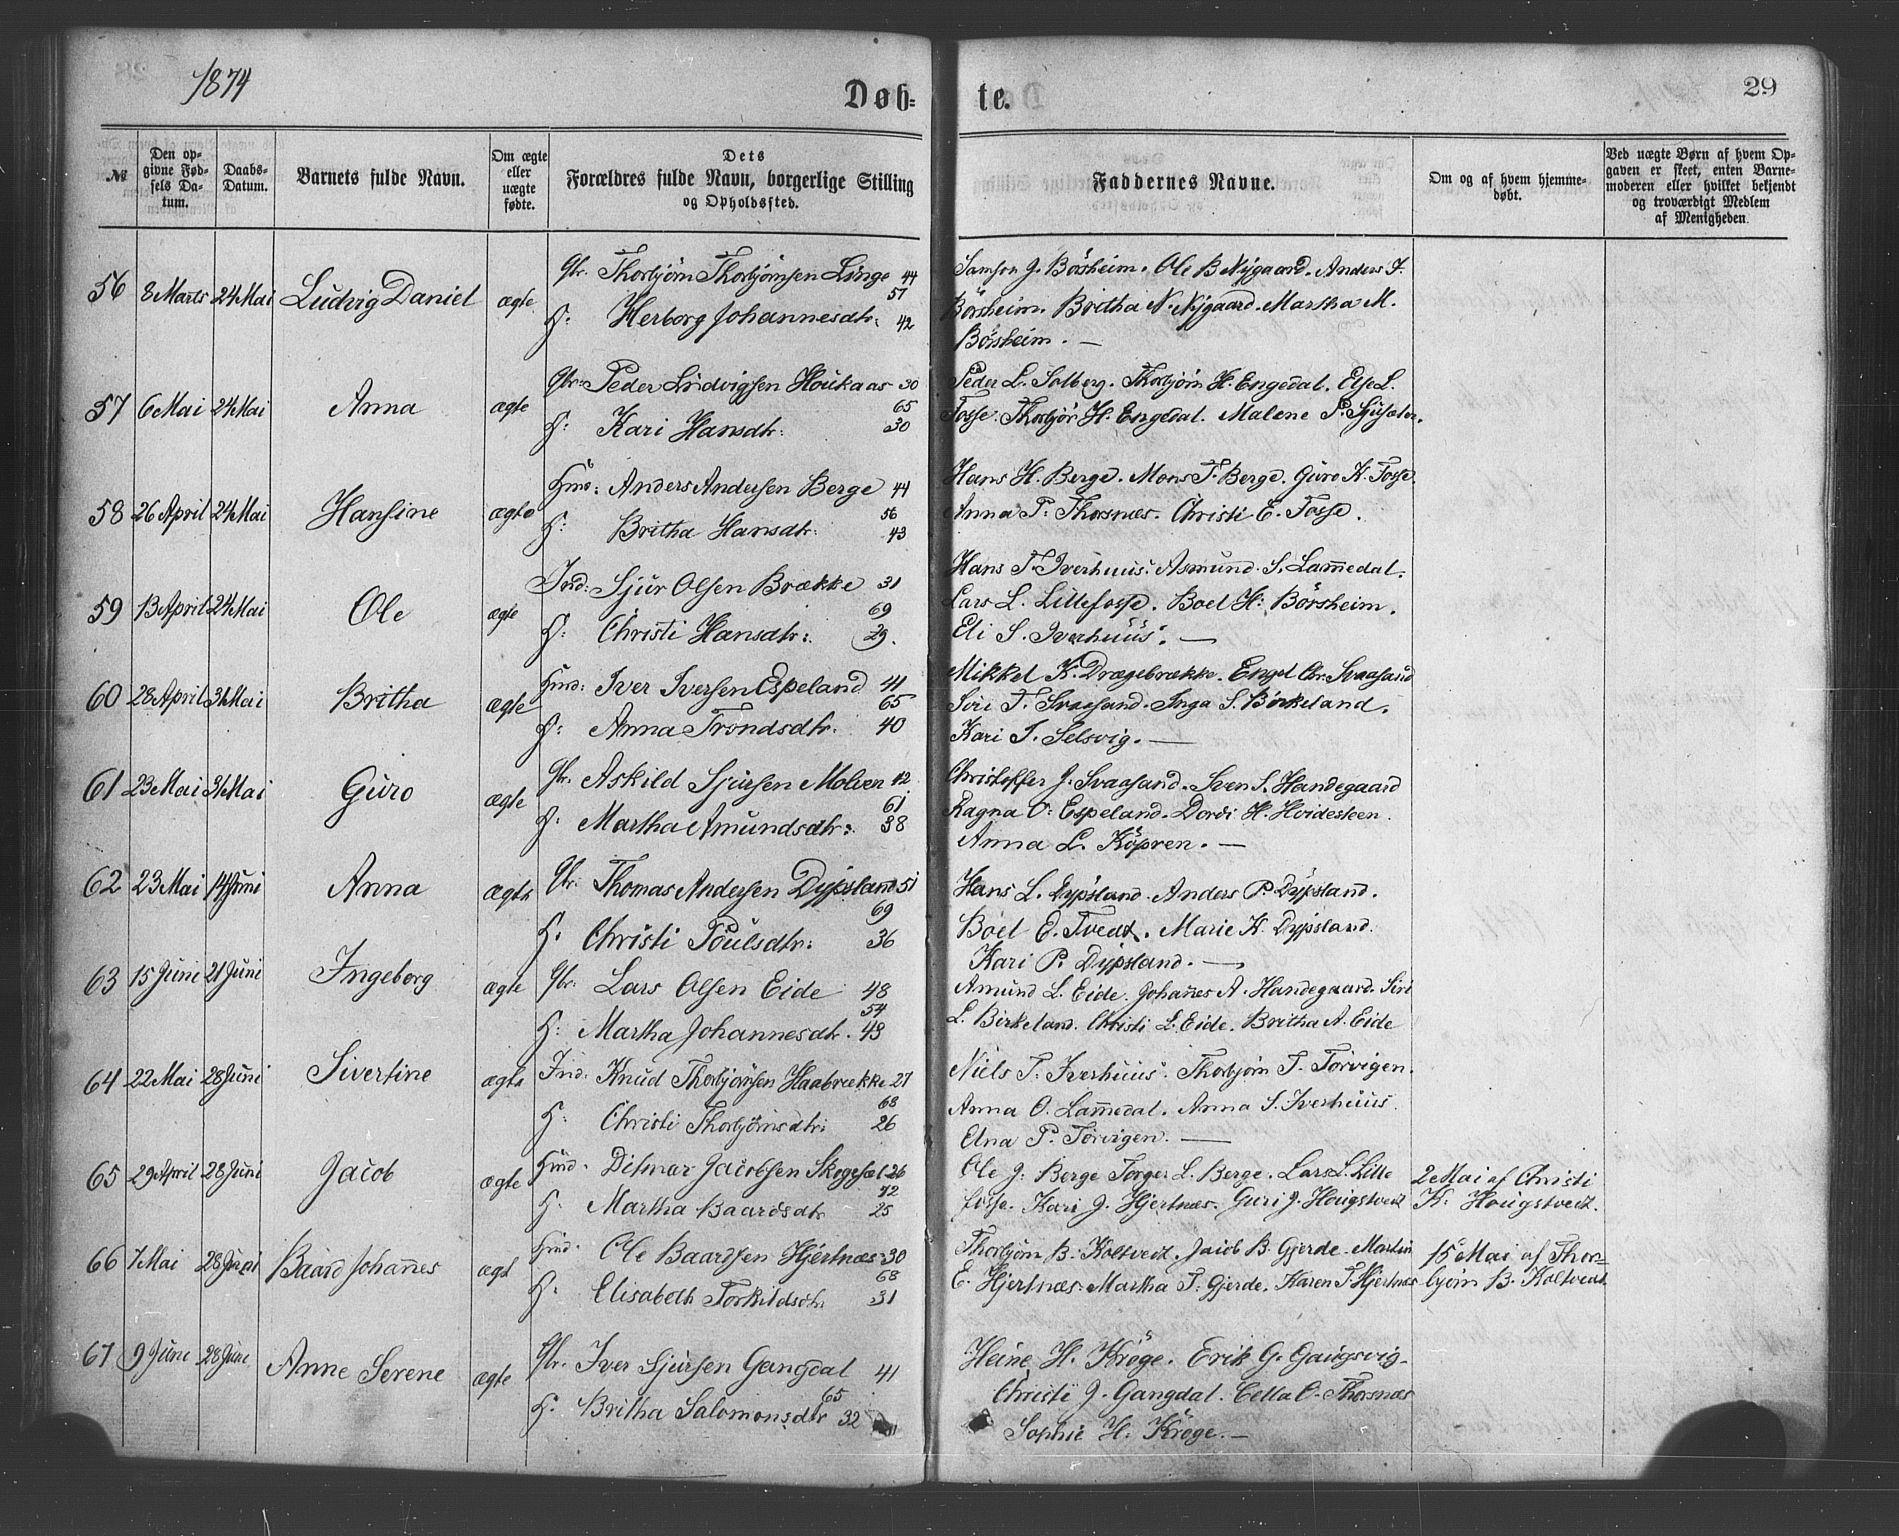 1874
Døb-
te.
29
№
Den op-
givne Fød-
sels Da-
tum.
Daabs-
Datum.
Barnets fulde Navn.
Om ægte
eller
uægte
fødte.
Dets
Forældres fulde Navn, borgerlige Stilling
og Opholdssted.
Faddernes Navne.
Om og af hvem hjemme-
døbt.
Ved uægte Børn af hvem Op-
gaven er skeet, enten Barne-
moderen eller hvilket bekjendt
og troværdigt Medlem
af Menigheden.
56 8 Marts 24 Mai Ludvig Daniel ægte
Gbr. Thorbjörn Thorbjörnsen Linge 44
57
H: Herborg Johannesdtr: 42
Samson J. Börsheim. Ole B Nygaard. Anders I.
Börsheim. Britha N. Nygaard. Martha M.
Börsheim. —
57 6 Mai 24 Mai Anna ægte
Gbr: Peder Ludvigsen Houkaas 30
65
H: Kari Hansdtr: 30
Peder L. Solberg. Thorbjörn H. Engedal. Else L.
Fosse. Thorbjör H. Engedal. Malene P.
58 26 April 24 Mai Hansine ægte
Hus: Anders Andersen Berge 44
56
H: Britha Hansdtr: 43
Hans H. Berge. Mons T. Berge. Guro K. Fosse.
Anna P. Thorsnæs. Christi E. Fosse.
59 13 April 24 Mai Ole ægte
Ind: Sjur Olsen Brække 31
69
H: Christi Hansdtr: 29.
Hans T. Iverhuus. Asmund S. Lam̄edal.
Lars L. Lillefosse. Boel H: Börsheim.
Eli S. Iverhuus. —
60 28 April 31 Mai Britha ægte
Husd: Iver Iversen Espeland 41
65
H: Anna Trondsdtr. 40
Mikkel K. Drægebrække. Engel Chr. Svaasand
Siri T. Svaasand. Inga S. Birkeland.
Kari I. Selsvig. —
61 23 Mai 31 Mai Guro ægte
Gbr. Askild Sjursen Molven 42
61
H: Martha Amundsdtr: 38
Christoffer J. Svaasand. Sven S. Handegaard
Ragna O: Espeland. Dordi H. Hvidesteen.
Anna L. Köpren. —
62 23 Mai 14 Juni Anna ægte
Gbr. Thomas Andersen Dypsland 51
69
H. Christi Poulsdtr: 36
Hans L. Dypsland. Anders P. Dypsland.
Boel E. Tvedt. Marie K. Dypsland.
Kari P. Dypsland. —
63 15 Juni 21 Juni Ingeborg ægte
Gbr: Lars Olsen Eide 48
54
H: Martha Johannesdtr. 43
Amund L. Eide. Johan̄es A. Handegaard. Siri
L. Birkeland. Christi L. Eide. Britha A. Eide
64 22 Mai 28 Juni Sivertine ægte
Ind: Knud Thorbjörnsen Haabrække 27
68
H. Christi Thorbjörnsdtr: 26
Niels T. Iverhuus. Thorbjörn T. Törvigen.
Anna O. Lam̄edal. Anna S. Iverhuus.
Elna P. Törvigen. —
65 29 April 28 Juni Jacob ægte
Husd. Ditmar Jacobsen 26
72
H. Martha Baardsdtr 25
Ole J. Berge Torger L. Berge. Lars L. Lille
fosse. Kari J. Hjertnæs. Guri J. Hougstvedt
2 Mai af Christi
K. Hougstvedt.
66 7 Mai 28 Juni Baard Johan̄es ægt
Husd. Ole Baardsen Hjertnæs 30
68
H. Elisabeth Torkildsdtr 31
Thorbjörn B. Koltvedt. Jacob B. Gjerde. Martin
E. Hjertnæs. Martha T. Gjerde. Karen T Hjertnæs
15 Mai af Thor-
björn B. Koltvedt.
67 9 Juni 28 Juni Anne Serene ægte
Gbr. Iver Sjursen Gangdal 41
65
H. Britha Salomonsdtr 32
Heine H. Kröge. Erik G. Gaugsvig.
Christi J. Gangdal. Cella O. Thorsnæs
Sophie H. Kröge. —